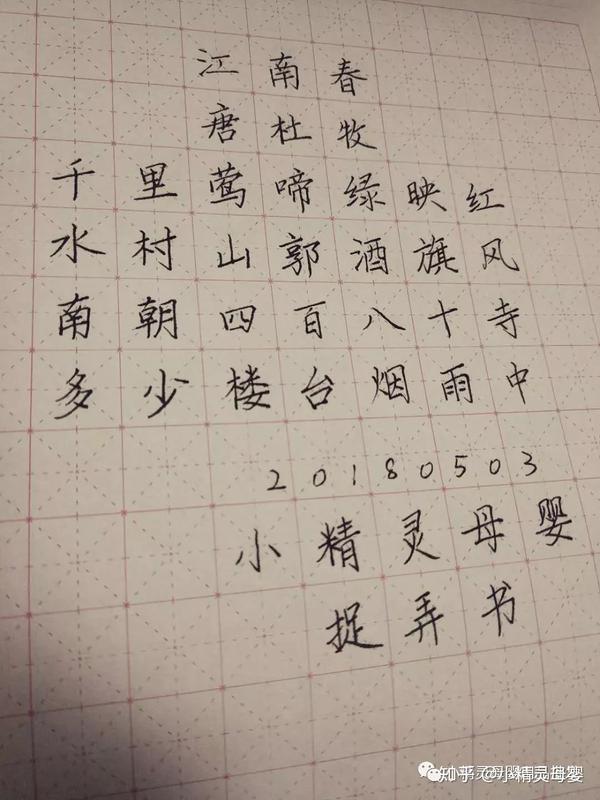 江南春
唐杜牧
千里莺啼绿映红
水村山郭酒旗风
南朝四百八十寺
多少楼台烟雨中
20180503
小精灵母婴
捉弄书
知乎 @小精灵母婴